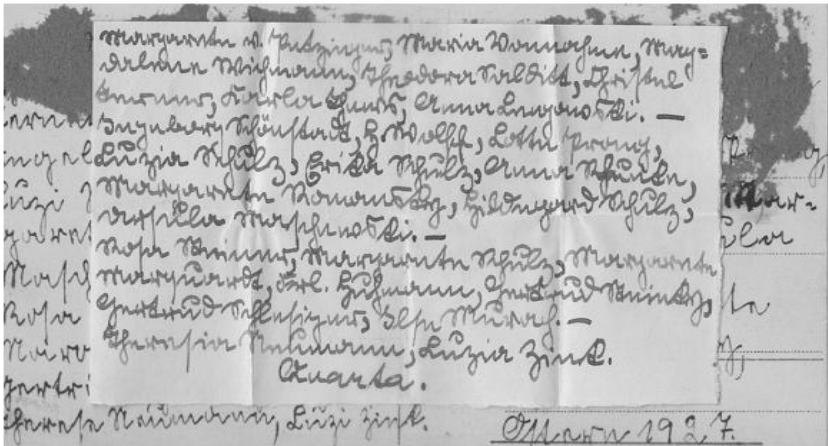 Margarete v. Putzinger, Maria Vonnahme, Mag=
dalene Wichmann, Theodora Salditt, Christel
Karla Thews, Anna Lengowski. —
Ingeborg Schönstadt, H. Wolff, Lotte Prang,
Luzia Schulz, Erika Schulz, Anna Schulte,
Margarete Romanosky, Hildegard Schulz,
Ursula Maschewski. —
Rosa Steiner, Margarete Schulz, Margarete
Marquardt, Frl. Huhmann, Gertrud Steinky,
Gertrud Schlesiger, Ilse Murach. —
Theresia Neumann, Luzia Zink.
Quarta.
Therese Neumann, Luzi Zink.
Ostern 1927.